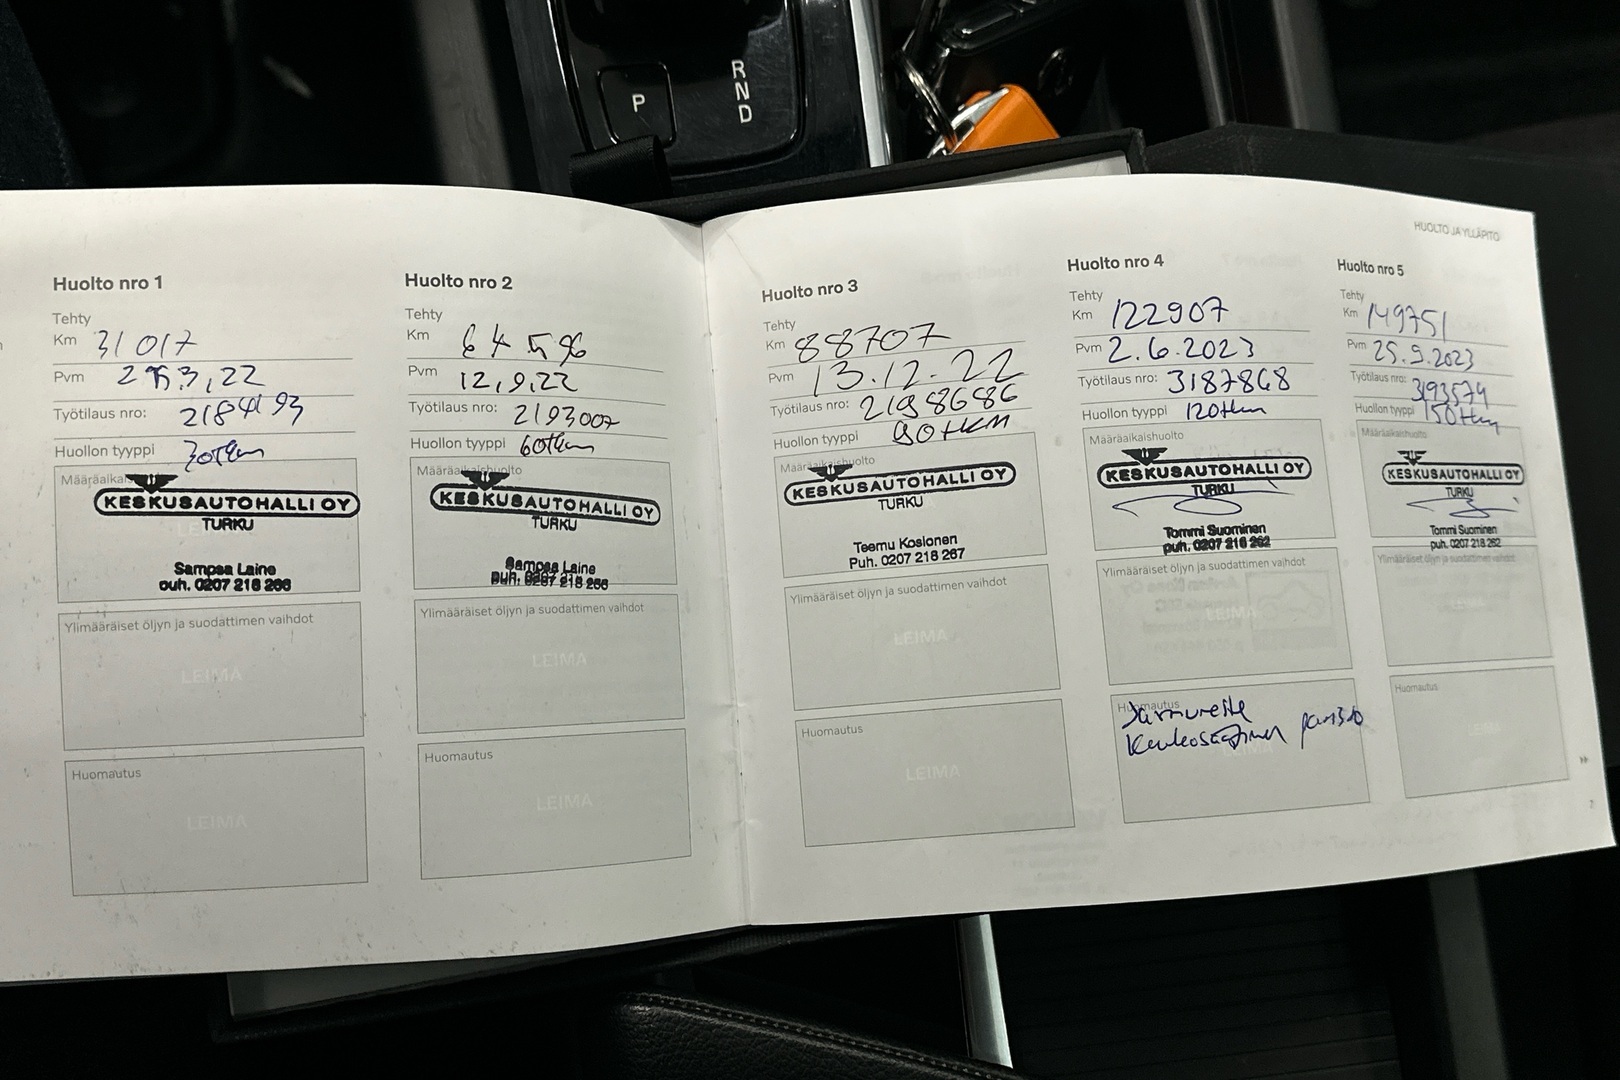 P
R
N
D
HUOLTO JA YLLÄPITO
Huolto nro 1
Tehty
Km 31 017
Pvm
Työtilaus nro: 2184193
Huollon tyyppi 30tkm
KESKUSAUTOHALLI OY
TURKU
Sampsa Laine
puh. 0207 218 266
Ylimääräiset öljyn ja suodattimen vaihdot
LEIMA
Huomautus
LEIMA
Huolto nro 2
Tehty
Km 64596
Pvm 12,9,22
Työtilaus nro: 2193007
Huollon tyyppi 60tkm
Määräaikaishuolto
KESKUSAUTOHALLI OY
TURKU
Sampsa Laine
puh. 0207 218 266
Ylimääräiset öljyn ja suodattimen vaihdot
LEIMA
Huomautus
LEIMA
Huolto nro 3
Tehty
Km 88707
Pvm 13.12.22
Työtilaus nro: 2198686
Huollon tyyppi 90tkm
Määräaikaishuolto
KESKUSAUTOHALLI OY
TURKU
Teemu Koslonen
Puh. 0207 218 267
Ylimääräiset öljyn ja suodattimen vaihdot
LEIMA
Huomautus
LEIMA
Huolto nro 4
Tehty
Km 122907
Pvm 2.6.2023
Työtilaus nro: 3187868
Huollon tyyppi 120tkm
Määräaikaishuolto
KESKUSAUTOHALLI OY
TURKU
Tommi Suominen
puh. 0207 218 262
Ylimääräiset öljyn ja suodattimen vaihdot
LEIMA
Huomautus
Huolto nro 5
Tehty
Km 149751
Pvm 25.9.2023
Työtilaus nro: 3193574
Huollon tyyppi 150tkm
Määräaikaishuolto
KESKUSAUTOHALLI OY
TURKU
Tommi Suominen
puh. 0207 218 262
Ylimääräiset öljyn ja suodattimen vaihdot
LEIMA
Huomautus
LEIMA